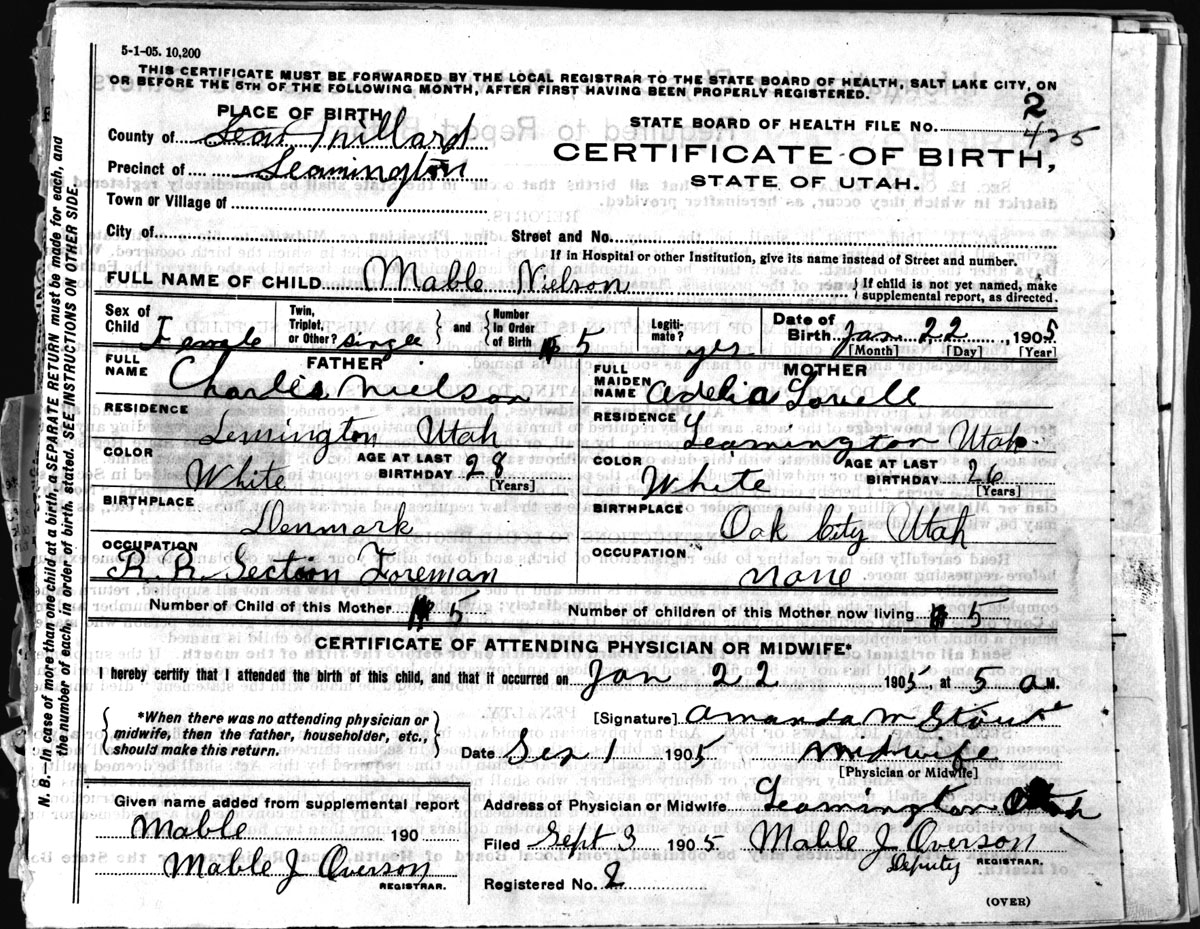 5-1-05. 10,200
THIS CERTIFICATE MUST BE FORWARDED BY THE LOCAL REGISTRAR TO THE STATE BOARD OF HEALTH, SALT LAKE CITY, ON
OR BEFORE THE 5TH OF THE FOLLOWING MONTH, AFTER FIRST HAVING BEEN PROPERLY REGISTERED.
PLACE OF BIRTH
County of Millard
Precinct of Leamington
Town or Village of
City of
2
STATE BOARD OF HEALTH FILE No. 425
CERTIFICATE OF BIRTH,
STATE OF UTAH.
Street and No.
If in Hospital or other Institution, give its name instead of Street and number.
FULL NAME OF CHILD Mable Nielson { If child is not yet named, make supplemental report, as directed.
Sex of Child Female Twin, Triplet, or Other? single } and { Number in Order of Birth 5 Legitimate? yes Date of Birth Jan 22, 1905
[Month] [Day] [Year]
FATHER
FULL NAME Charlie Nielson
RESIDENCE
Lemington Utah
COLOR White AGE AT LAST BIRTHDAY 28
[Years]
BIRTHPLACE
Denmark
OCCUPATION
R. R. Section Foreman
MOTHER
FULL MAIDEN NAME Adelia Lovell
RESIDENCE
Leamington Utah
COLOR White AGE AT LAST BIRTHDAY 26
[Years]
BIRTHPLACE
Oak City Utah
OCCUPATION
none
Number of Child of this Mother 5 Number of children of this Mother now living 5
CERTIFICATE OF ATTENDING PHYSICIAN OR MIDWIFE*
I hereby certify that I attended the birth of this child, and that it occurred on Jan 22 1905 at 5 a M.
*When there was no attending physician or
midwife, then the father, householder, etc.,
should make this return.
[Signature] Amanda M
Date Sep 1 1905 Midwife
[Physician or Midwife]
Given name added from supplemental report
Mable 190
Mable J Overson
REGISTRAR.
Address of Physician or Midwife Leamington Utah
Filed Sept 3 1905 Mable J Overson
Deputy REGISTRAR.
Registered No. 2
(OVER)
N. B.—In case of more than one child at a birth, a SEPARATE RETURN must be made for each, and
the number of each, in order of birth, stated. SEE INSTRUCTIONS ON OTHER SIDE.